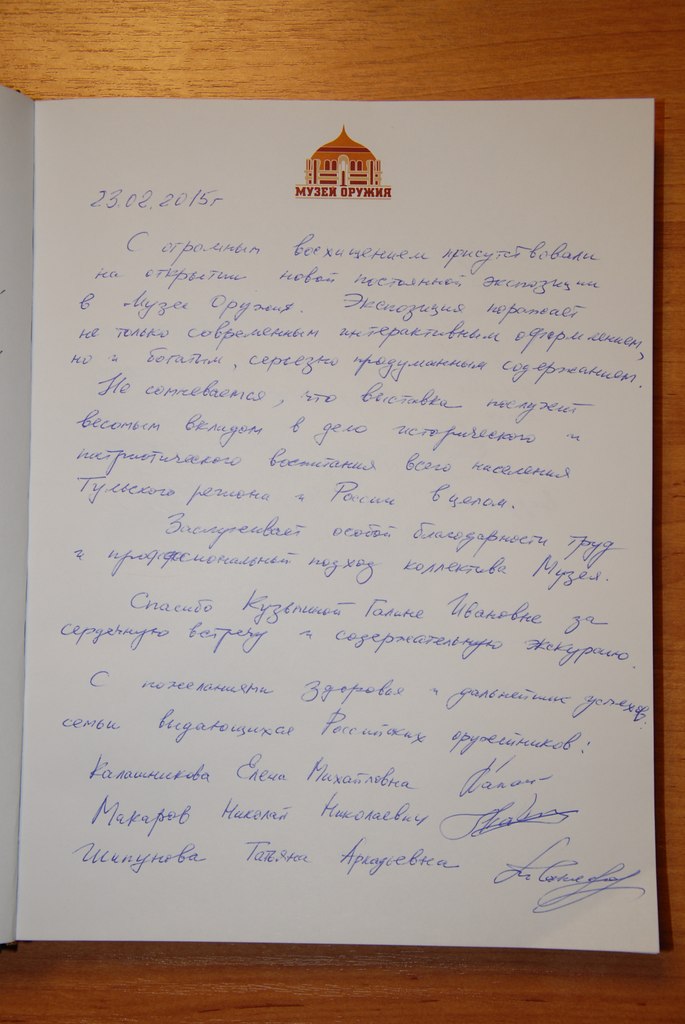 МУЗЕЙ ОРУЖИЯ
23.02.2015г
С огромным восхищением присутствовали
на открытии новой постоянной экспозиции
в Музее Оружия. Экспозиция поражает
не только современным интерактивным оформлением,
но и богатым, серьезно продуманным содержанием.
Не сомневаемся, что выставка послужит
весомым вкладом в дело исторического и
патриотического воспитания всего населения
Тульского региона и России в целом.
Заслуживает особой благодарности труд
и профессиональный подход коллектива Музея.
Спасибо Кузьминой Галине Ивановне за
сердечную встречу и содержательную экскурсию.
С пожеланиями здоровья и дальнейших успехов.
семьи выдающихся Российских оружейников:
Калашникова Елена Михайловна
Макаров Николай Николаевич
Шипунова Татьяна Аркадьевна